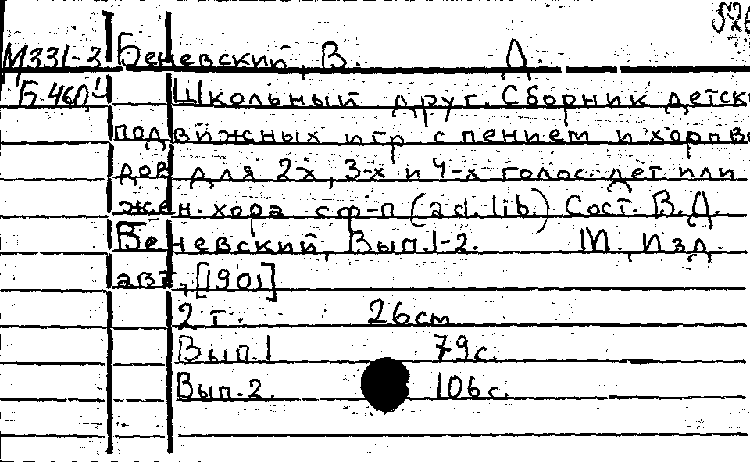 526
М331-3 Беневский, В. Д.
Б.460 Школьный друг. Сборник детск
подвижных игр с пением и хорово
дов для 2х, 3-х и 4-х голос. дет. или
жен. хора с ф-п (ad. lib.) Сост. В.Д.
Беневский, Вып.1-2. М., Изд.
авт., [190]
2 т. 26см
Вып.1 79с.
Вып.2. 106с.